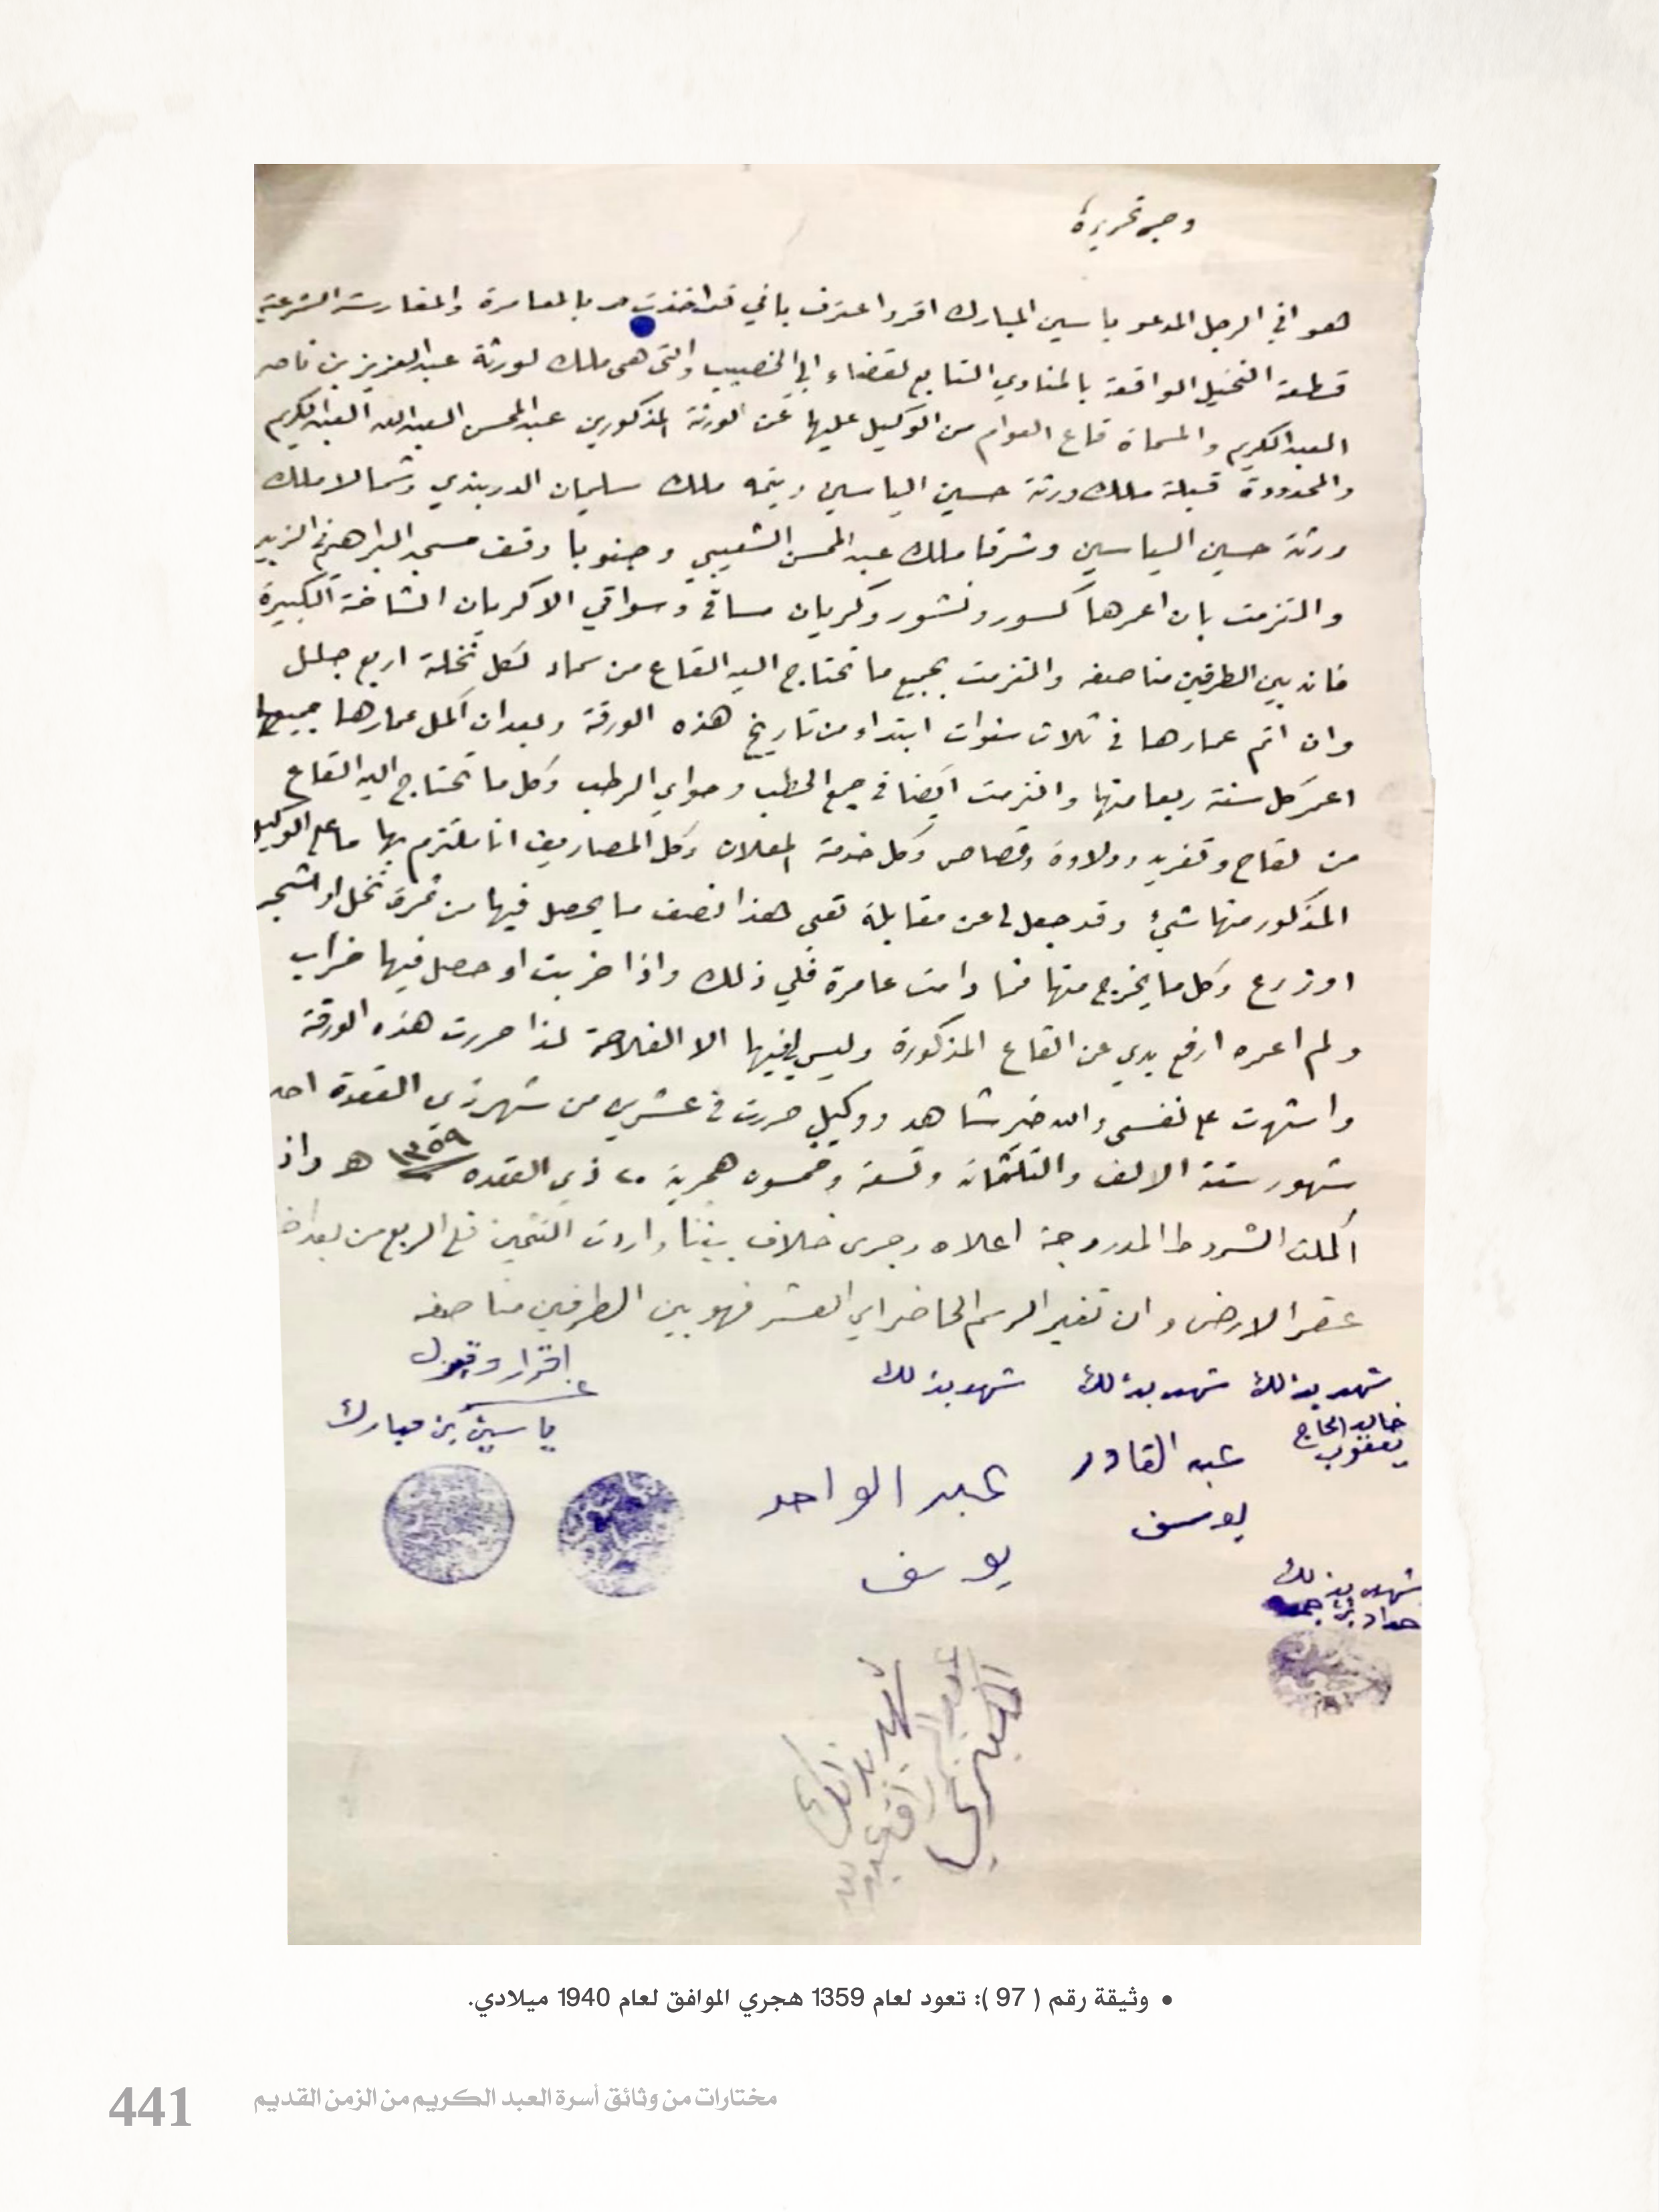 وجه تحريره
هو اني الرجل المدعو ياسين المبارك اقر واعترف باني قد اخذت بالمعامرة والمغارسة الشرعية
قطعة النخيل الواقعة بالمناوي التابع لقضاء ابي الخصيب والتي هي ملك لورثة عبدالعزيز بن ناصر
العبدالكريم والمسماة قاع العوام من الوكيل عليها عن الورثة المذكورين عبدالمحسن العبدالله العبدالكريم
والمحدودة قبلة ملك ورثة حسين الياسين ويتمه ملك سليمان الدربندي وشمالا ملك
ورثة حسين الياسين وشرقا ملك عبدالمحسن الشعيبي وجنوبا وقف مسجد البراهيم في الزبير
والتزمت بان اعمرها كسور ونشور وكريان مساقي وسواقي الا كريان الشاخة الكبيرة
فانه بين الطرفين مناصفه والتزمت بجميع ما تحتاج اليه القاع من سماد لكل نخلة اربع جلل
وان اتم عمارها في ثلاث سنوات ابتداء من تاريخ هذه الورقة وبعد ان اكمل عمارها جميعها
اعمر كل سنة ربعا منها والتزمت ايضا في جمع الحطب وحواي الرطب وكل ما تحتاج اليه القاع
من لقاح وتفريد وولاوة وقصاص وكل خدمة المعلان وكل المصاريف انا ملتزم بها ما على الوكيل
المذكور منها شيئ وقد جعل لي عن مقابلة تعبي هذا نصف ما يحصل فيها من ثمرة نخل او شجر
او زرع وكل ما يخرج منها فما دامت عامرة فلي ذلك واذا خربت او حصل فيها خراب
ولم اعمره ارفع يدي عن القاع المذكورة وليس لي فيها الا الفلاحة لذا حررت هذه الورقة
واشهدت على نفسي والله خير شاهد ووكيل حررت في عشرين من شهر ذي القعدة احد
شهور سنة الالف والثلثمائة وتسعة وخمسون هجرية ٢٠ ذي القعده ١٣٥٩ هـ واذا
اكملت الشروط المدروجة اعلاه وجرى خلاف بيننا واردت التثمين فلي الربع من بعد اخراج
عقر الارض وان تغير الرسم الحاضر اي العشر فهو بين الطرفين مناصفه
شهد بذلك
خالد الحاج
يعقوب
شهد بذلك
عبد القادر
يوسف
شهد بذلك
عبد الواحد
يوسف
اقرار وقبول
ياسين بن مبارك
شهد بذلك
حداد بن
شهد بذلك
• وثيقة رقم ( 97 ): تعود لعام 1359 هجري الموافق لعام 1940 ميلادي.
مختارات من وثائق أسرة العبد الكريم من الزمن القديم
441